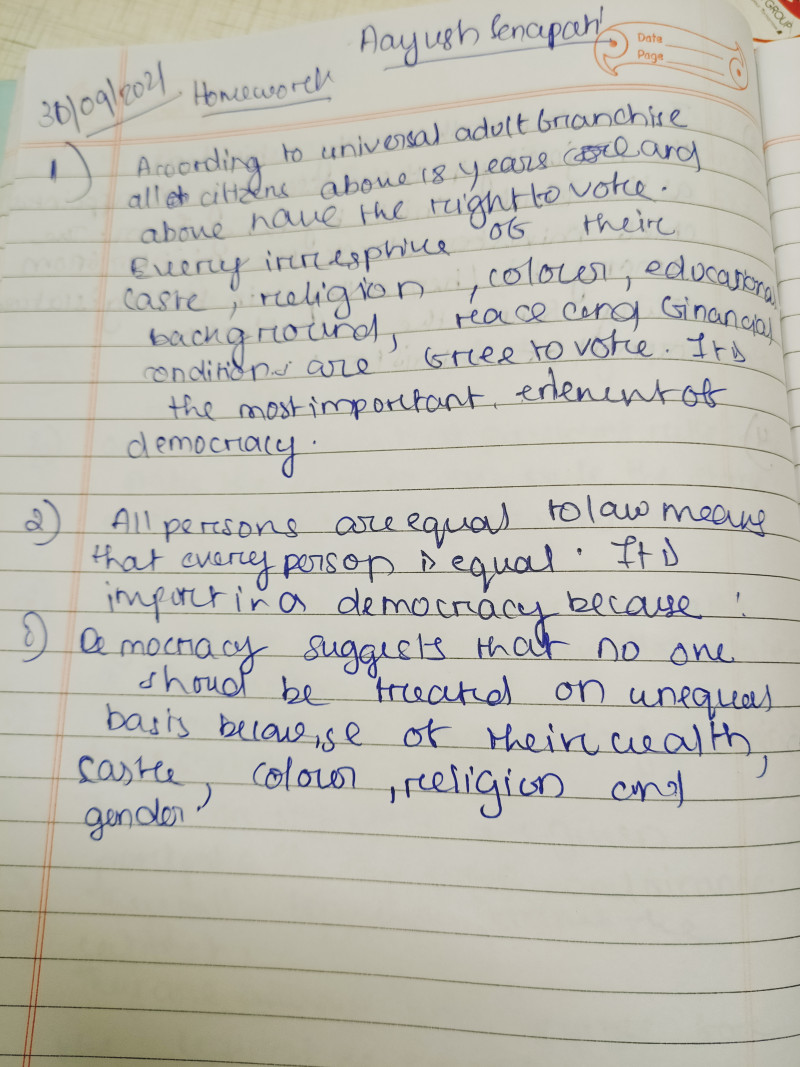 Aayush Senapati
Date
Page
GROUP
30/09/2021 Homework
1) According to universal adult franchise
all citizens above 18 years and
above have the right to vote.
Every irresphive of their
caste, religion, colour, educational
background, race and financial
conditions are free to vote. It is
the most important element of
democracy.
2) All persons are equal to law means
that every person is equal. It is
import in a democracy because :
i) Democracy suggests that no one
shoud be treated on unequal
basis because of their wealth,
caste, colour, religion and
gender.